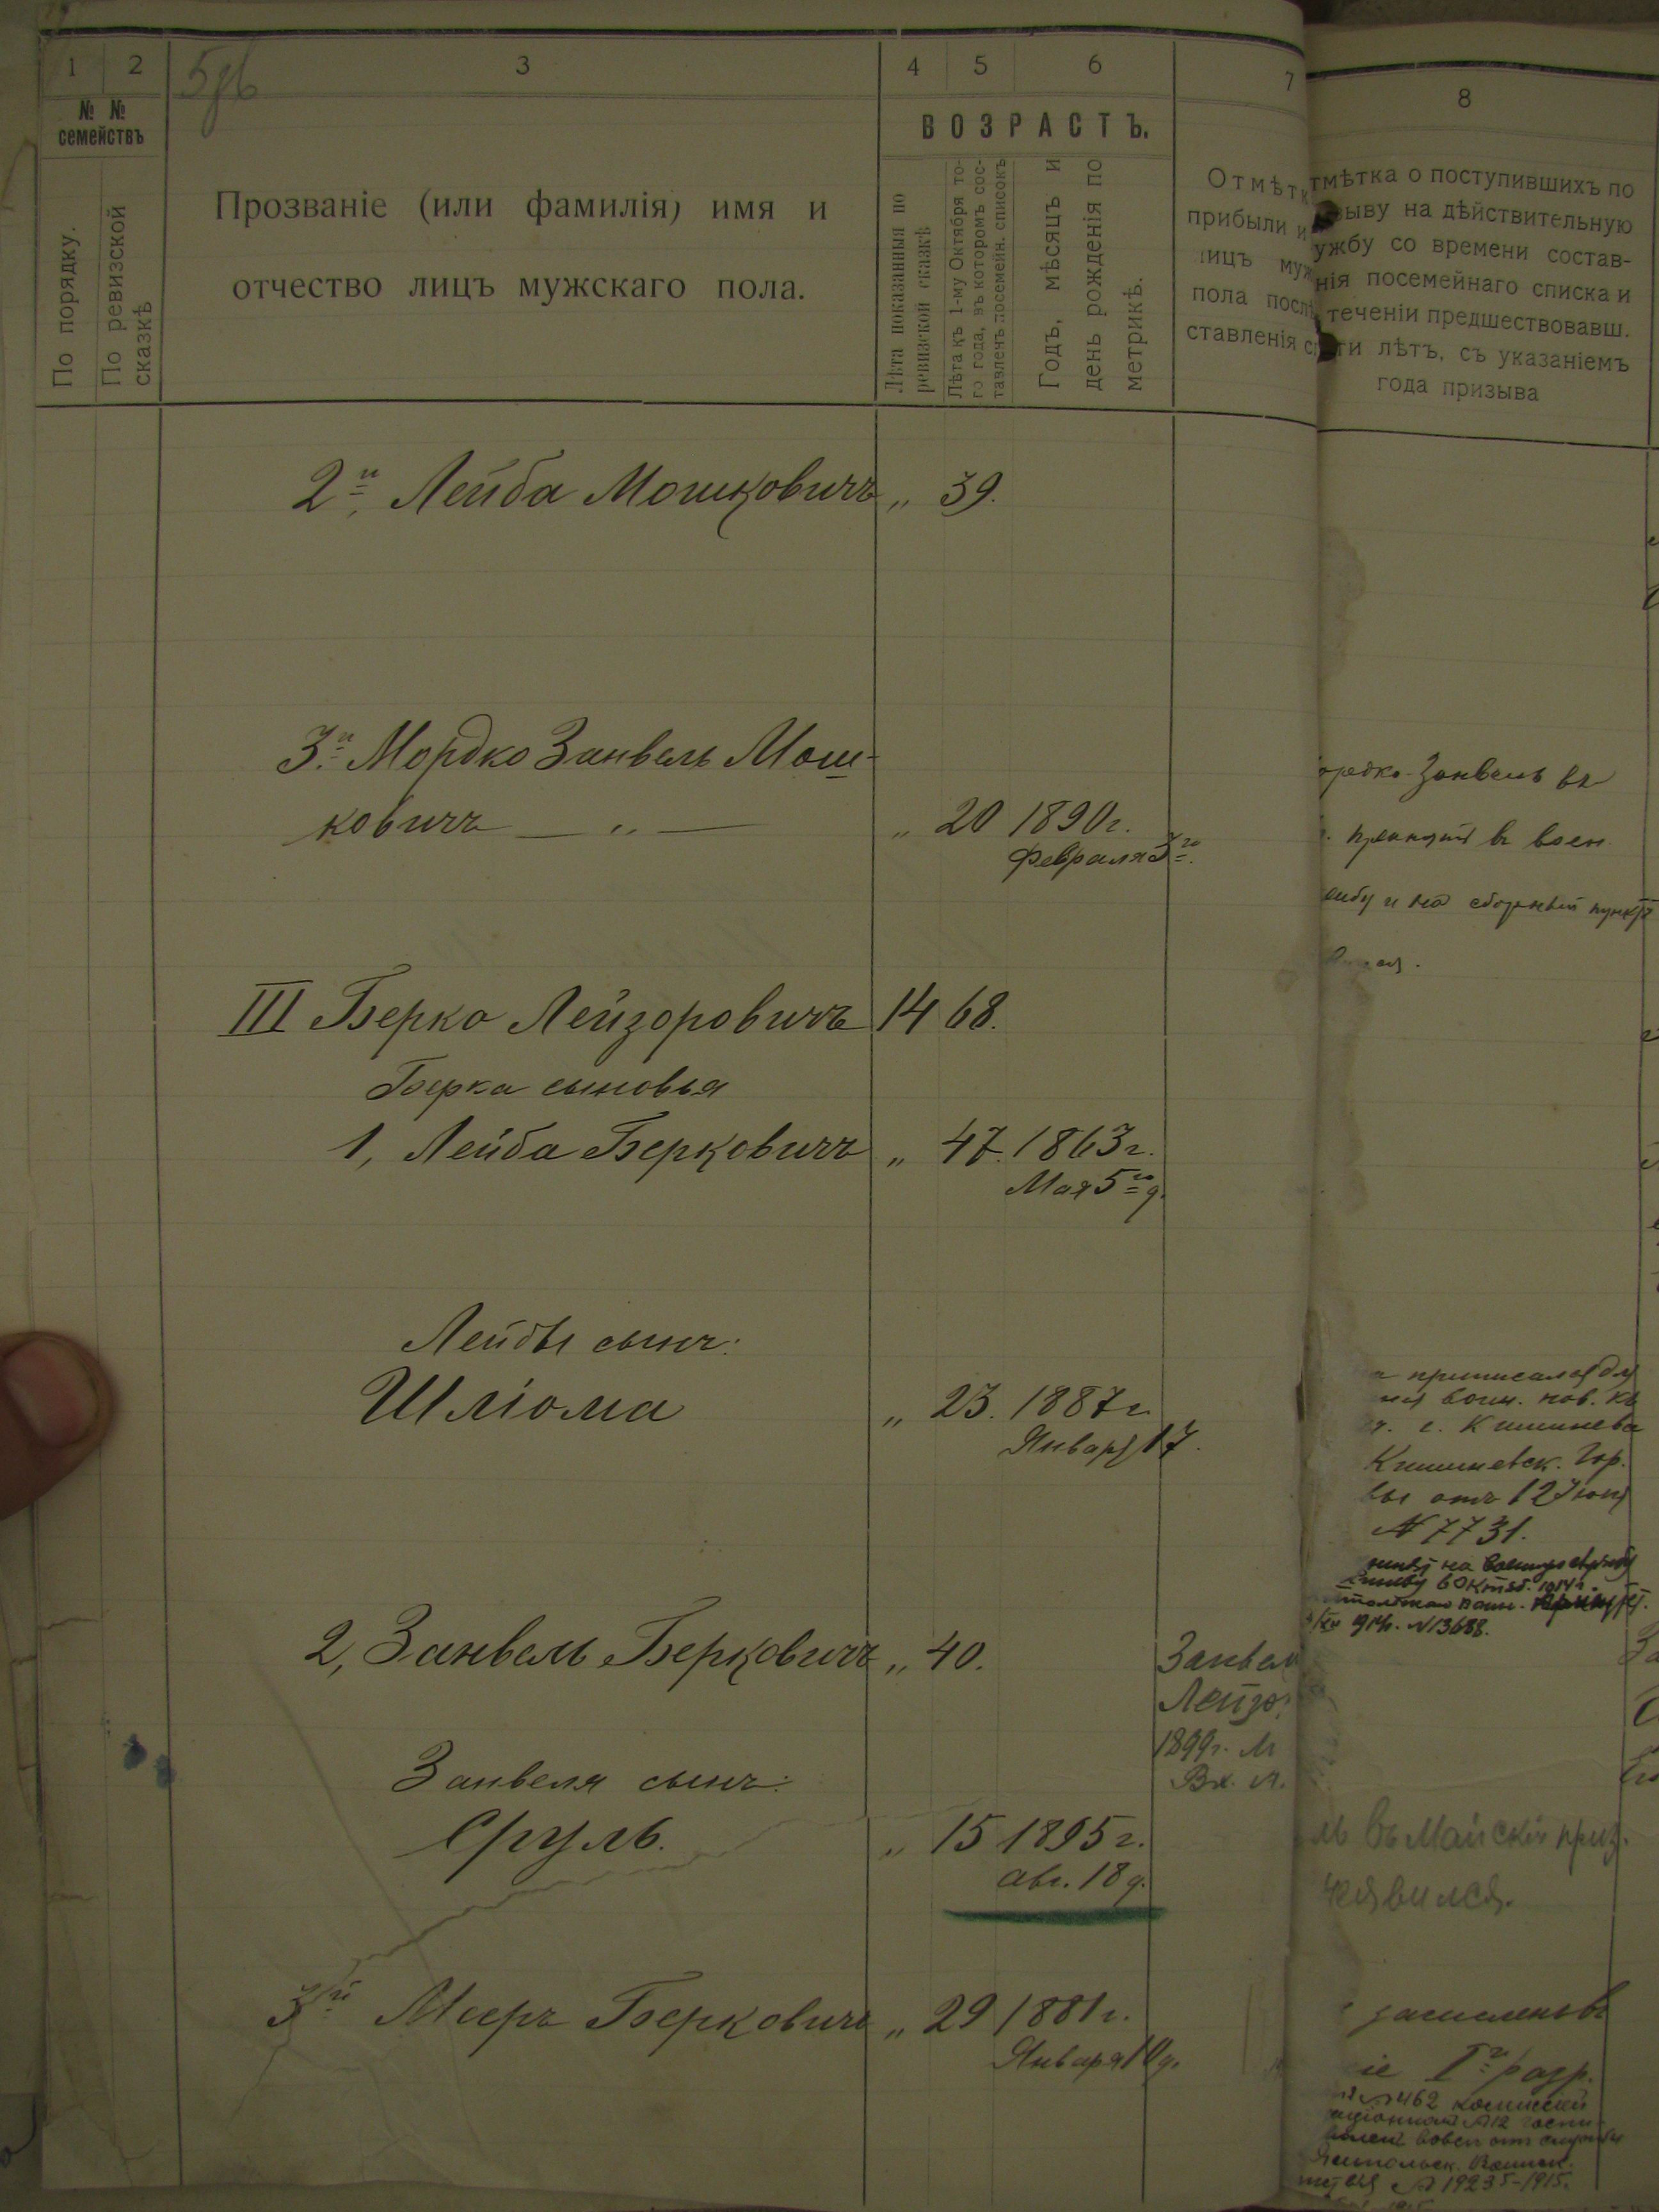 1 2 3 4 5 6 7
№ № семействъ
По порядку.
По ревизской сказкѣ
Прозваніе (или фамилія) имя и
отчество лицъ мужскаго пола.
ВОЗРАСТЪ.
Лѣта показанныя по ревизской сказкѣ
Лѣта къ 1-му Октября то-
го года, въ которомъ сос-
тавленъ посемейн. списокъ
Годъ, мѣсяцъ и
день рожденія по
метрикѣ.
Отмѣтк
прибыли и
лицъ муж
пола послѣ
ставленія с
8
тмѣтка о поступившихъ по
зыву на дѣйствительную
ужбу со времени состав-
нія посемейнаго списка и
теченіи предшествовавш.
сти лѣтъ, съ указаніемъ
года призыва
2й, Лейба Мошковичъ „ 39.
3й. Мордко Занвель Мош-
ковичъ — „ — „ 20 1890г.
Февраля 3го.
ордко-Занвель въ
принятъ въ воен.
и на сборный пунктъ
III Берко Лейзоровичъ 14 68.
Берка сыновья
1, Лейба Берковичъ „ 47. 1863г.
Мая 5го д.
Лейбы сынъ:
Шліома „ 23. 1887г.
Января 17.
приписался для
воин. пов. къ
г. Кишинева
Кишиневск. Гор.
отъ 12 Юня
№ 7731.
на военную службу
1914г. № 13688.
2, Занвель Берковичъ „ 40.
Занвел
Лейзо
1899г. М
Вх. л.
Занвеля сынъ:
Сруль. „ 15 1895г.
авг. 18 д.
въ Майскій приз.
неявился.
3й Мееръ Берковичъ „ 29 1881г.
Января 10 д.
зачисленъ въ
іе Iго разр.
№ 462 комиссіи
№ 12 госпи-
вовсе отъ службы
Ямпольск. Воинск.
№ 19235-1915.